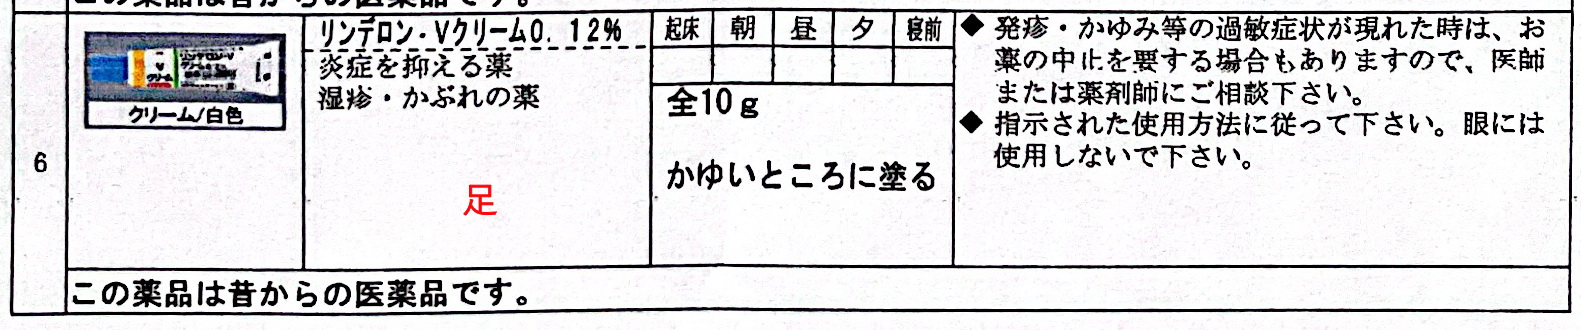 この薬品は昔からの医薬品です。
6
クリーム/白色
リンデロン・Vクリーム0.12%
炎症を抑える薬
湿疹・かぶれの薬
足
起床 朝 昼 夕 寝前
全10g
かゆいところに塗る
◆ 発疹・かゆみ等の過敏症状が現れた時は、お
薬の中止を要する場合もありますので、医師
または薬剤師にご相談下さい。
◆ 指示された使用方法に従って下さい。眼には
使用しないで下さい。
この薬品は昔からの医薬品です。